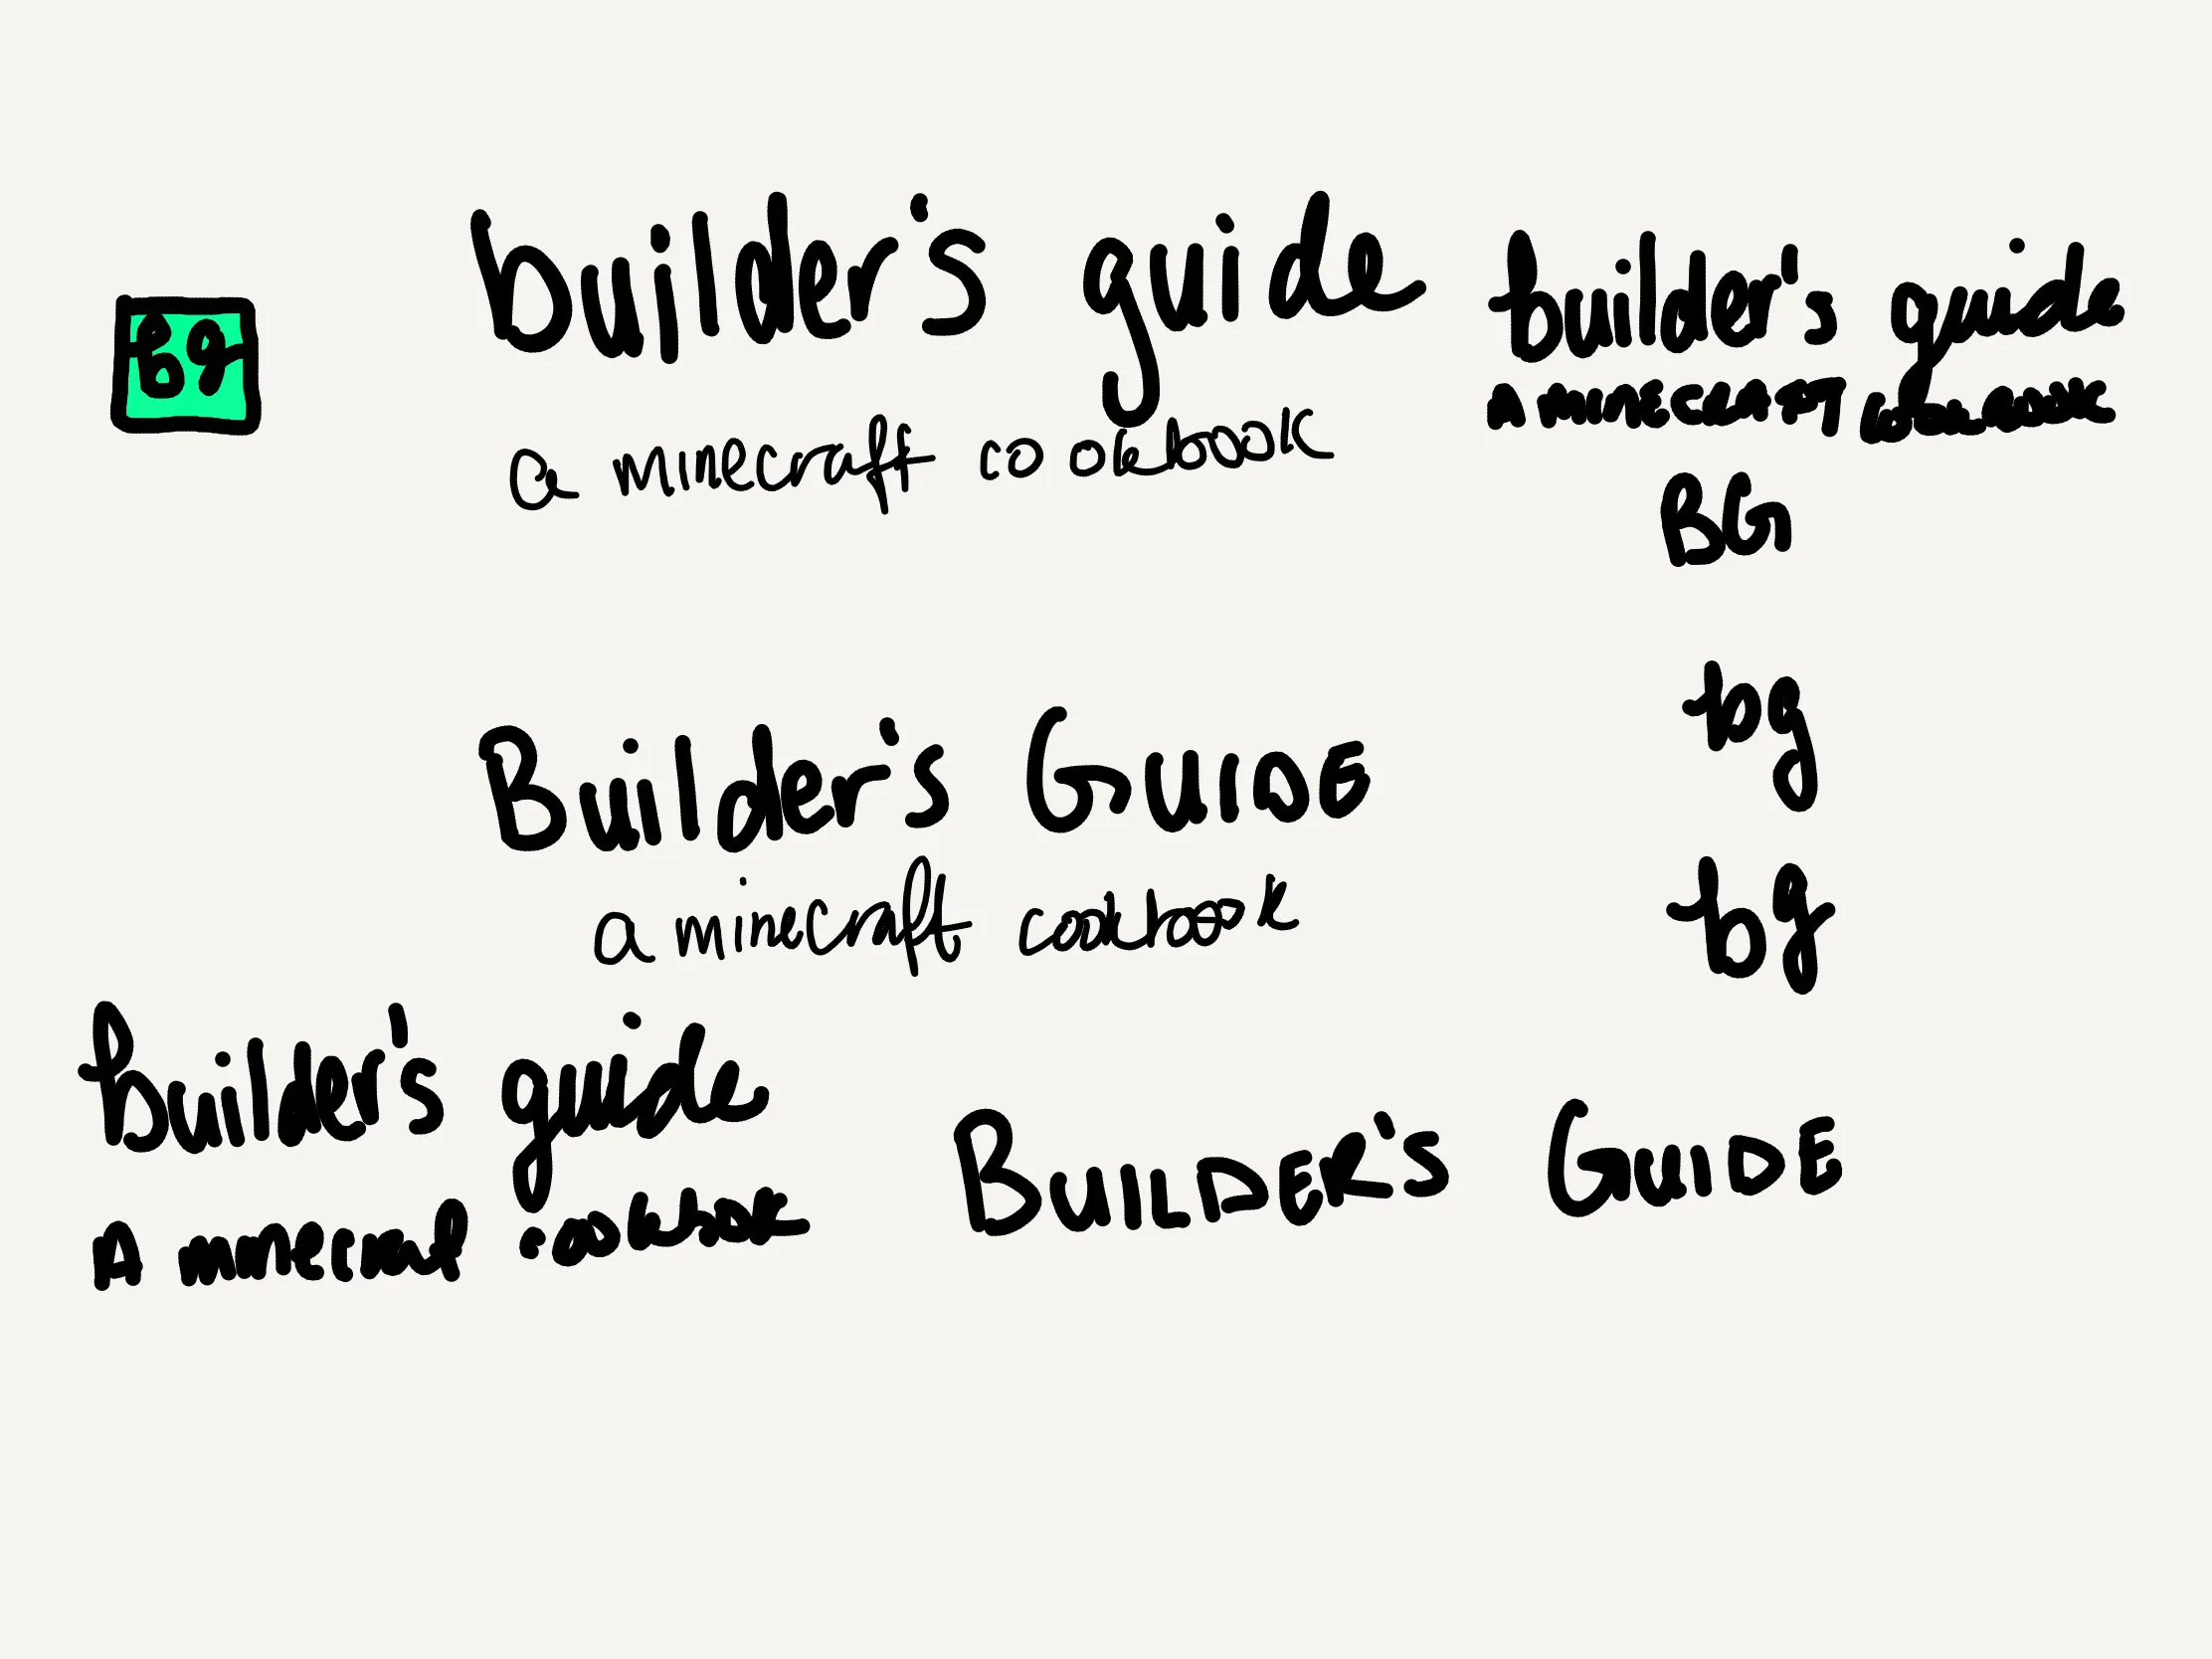 bg
builder's guide
a minecraft cookbook
builder's guide
A MINECRAFT COOKBOOK
BG
bg
bg
Builder's GUIDE
a minecraft cookbook
builder's guide
A minecraft cookbook
BUILDER'S GUIDE